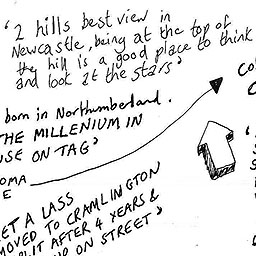 '2 hills best view in
Newcastle, being at the top of
the hill is a good place to think
and look at the stars'
born in Northumberland.
THE MILLENIUM IN
USE ON TAG'
OMA
E
CO
C
ET A LASS
MOVED TO CRAMLINGTON
LIT AFTER 4 YEARS &
UP ON STREET'